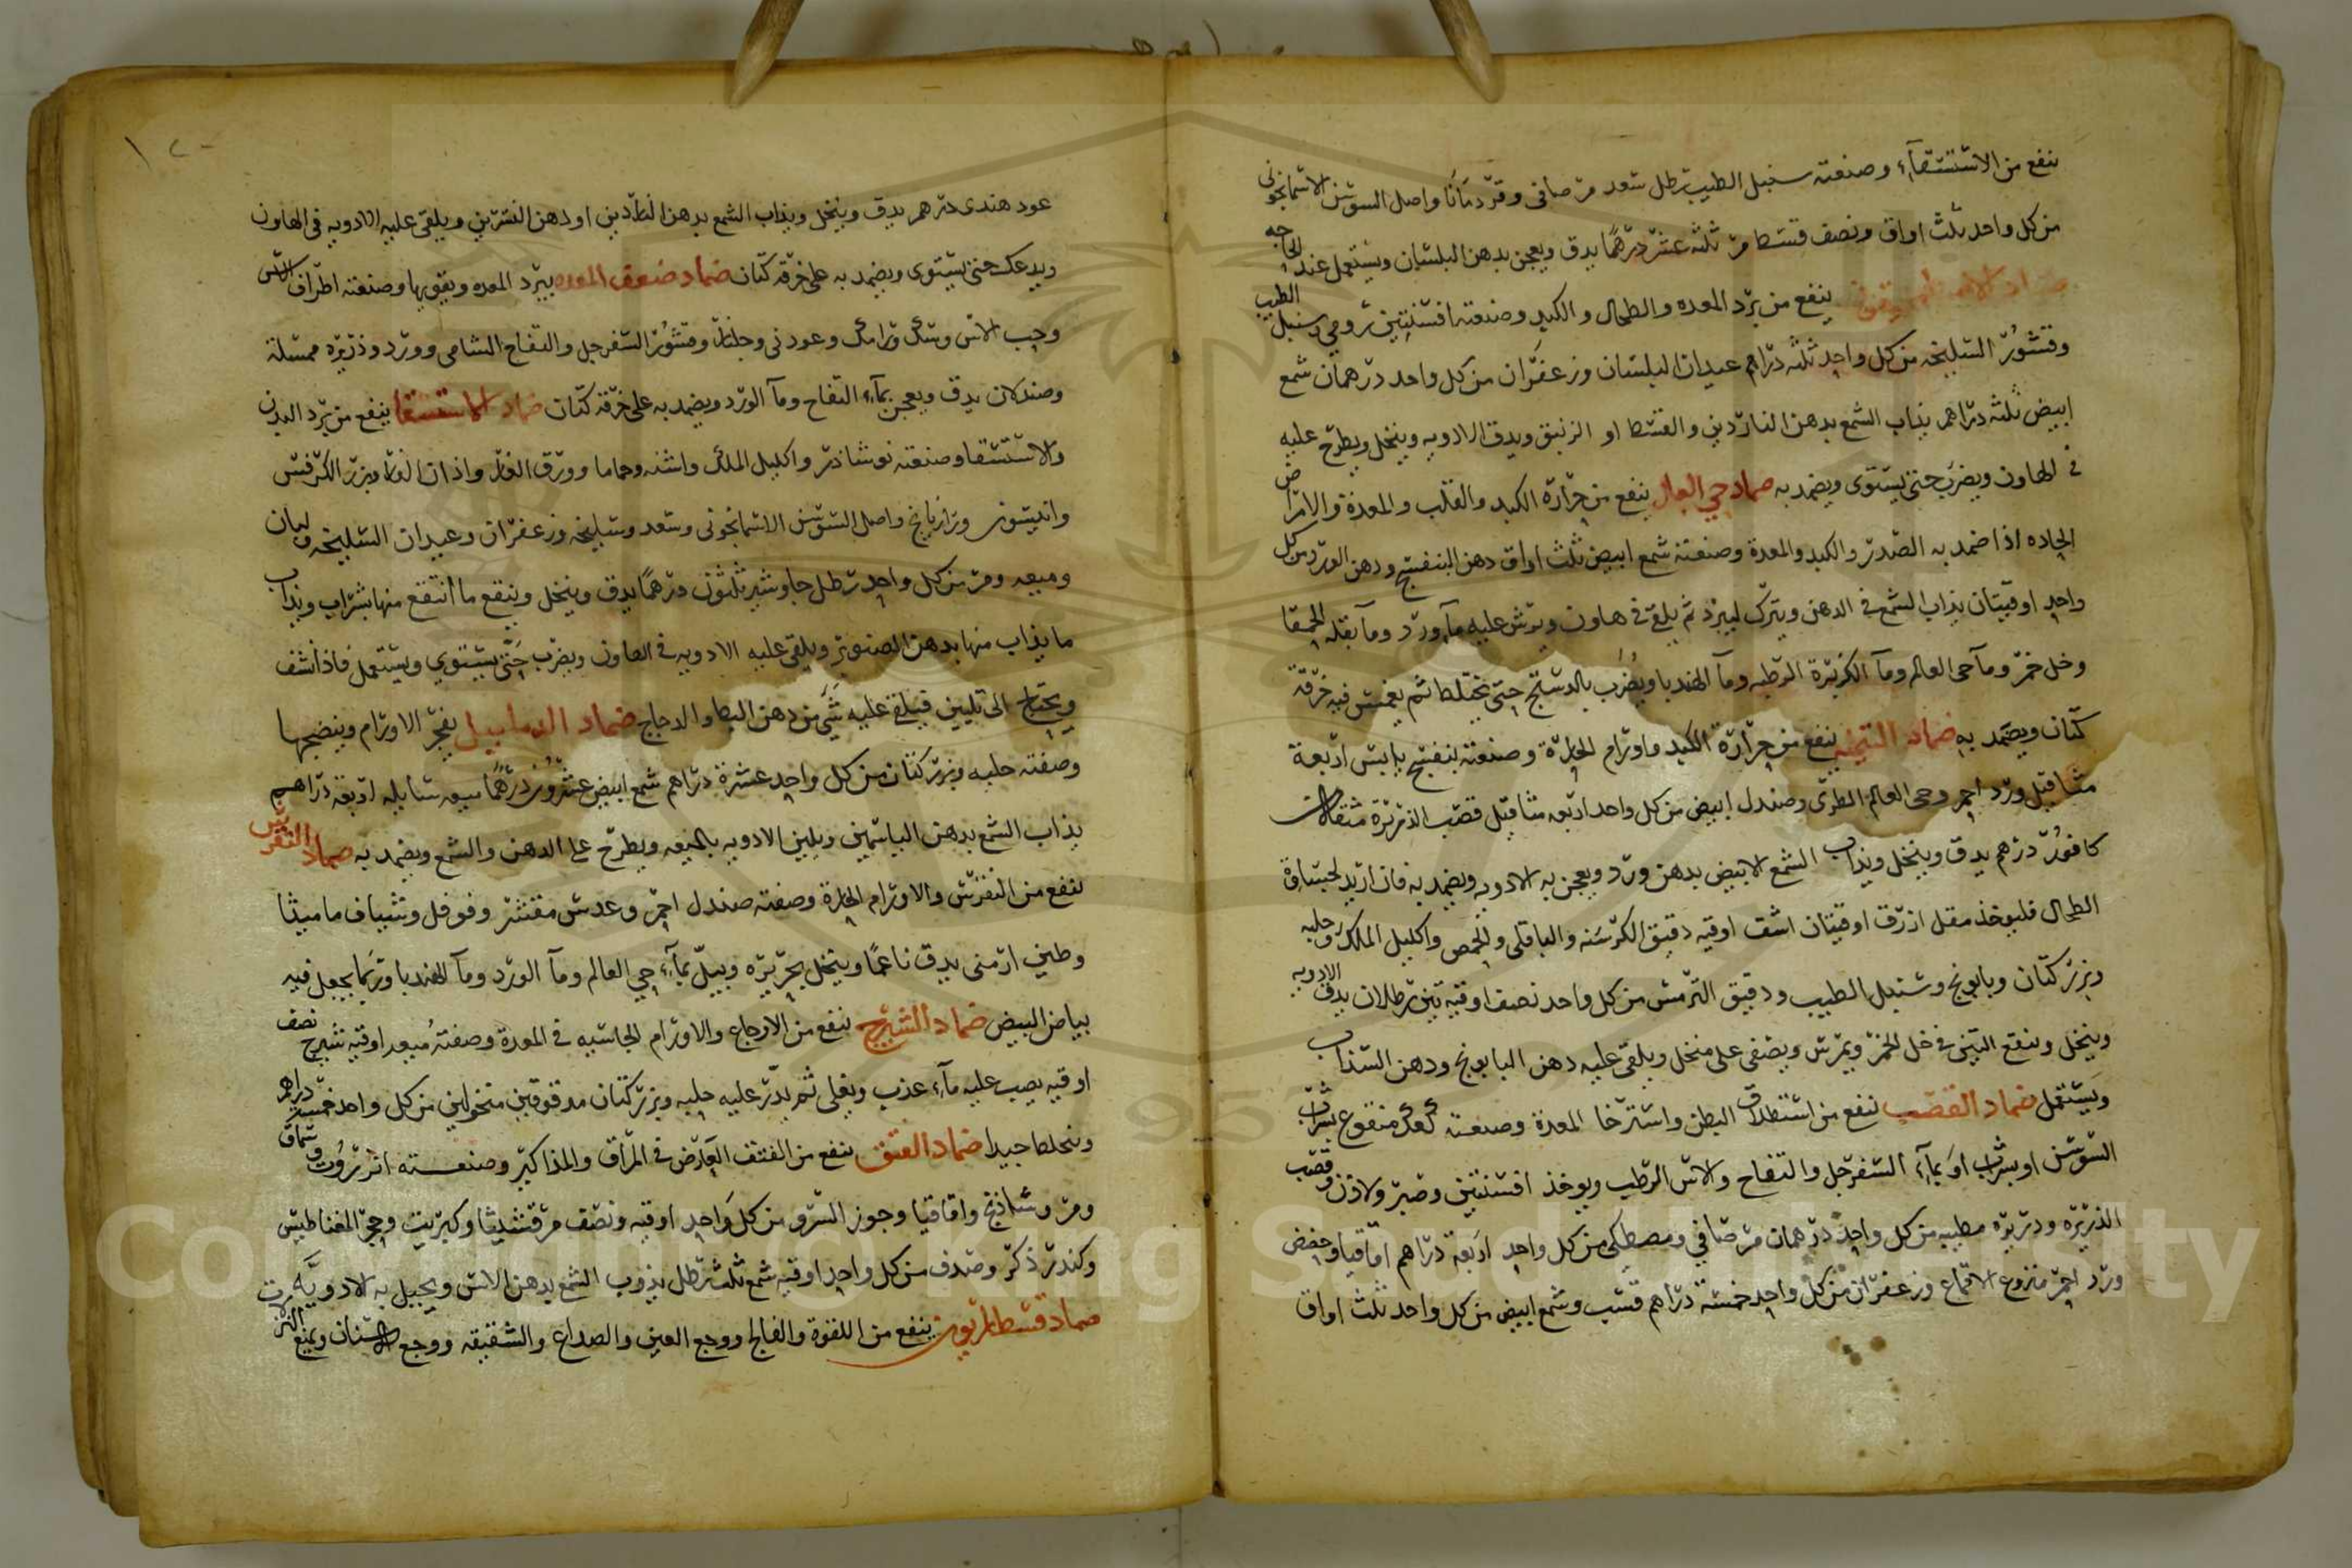 ينفع من الاستسقآء وصنعته سنبل الطيب رطل سعد مر صافى وقردمانا واصل السوسن الاسمانجونى
من كل واحد ثلث اواق ونصف قسط مر ثلثه عشر درهمًا يدق ويعجن بدهن البلسان ويستعمل عند الحاجه
ينفع من برد المعده والطحال والكبد وصنعته افسنتين رومي وسنبل الطيب
وقشور السليخه من كل واحد ثلثه دراهم عيدان البلسان وزعفران من كل واحد درهمان شمع
ابيض ثلثه دراهم يذاب الشمع بدهن الناردين والقسط او الزنبق ويدق الادويه وينخل ويطرح عليه
فى الهاون ويضرب حتى يستوى ويضمد به ضماد حي العالم ينفع من حرارة الكبد والقلب والمعدة والامراض
الحاده اذا ضمد به الصدر والكبد والمعدة وصنعته شمع ابيض ثلث اواق دهن البنفسج ودهن الورد من كل
واحد اوقيتان يذاب الشمع فى الدهن ويترك ليبرد ثم يلقى فى هاون ويرش عليه مآ ورد ومآ بقله الحمقا
وخل خمر ومآ حى العالم ومآ الكزبرة الرطبه ومآ الهندبا ويضرب بالدستج حتى يختلط ثم يغمس فيه خرقة
كتان ويضمد به ضماد ينفع من حرارة الكبد واورام الحارة وصنعته بنفسج يابس اربعة
مثاقيل ورد احمر وحى العالم الطرى وصندل ابيض من كل واحد اربعه مثاقيل قصب الذريرة مثقالان
كافور درهم يدق وينخل ويذاب الشمع الابيض بدهن ورد ويعجن به الادويه ويضمد به فان اريد لحساوة
الطحال فليوخذ مقل ازرق اوقيتان اشق اوقيه دقيق الكرسنه والباقلى والحمص واكليل الملك وحلبه
وبزر كتان وبابونج وسنبل الطيب ودقيق الترمس من كل واحد نصف اوقيه تين رطلان يدق الادويه
وينخل وينقع التين فى خل الخمر ويمرس ويصفى على منخل ويلقى عليه دهن البابونج ودهن السذاب
ويستعمل ضماد القصب ينفع من استطلاق البطن واسترخا المعدة وصنعته كعك منقوع بشراب
السوسن او بشراب او بمآء السفرجل والتفاح والاس الرطب ويوخذ افسنتين وصبر ولاذن وقصب
الذريره وذريره مطيبه من كل واحد درهمان مر صافي ومصطكى من كل واحد اربعة دراهم اقاقيا وحضض
ورد احمر منزوع الاقماع وزعفران من كل واحد خمسة دراهم قسب وشمع ابيض من كل واحد ثلث اواق
عود هندى درهم يدق وينخل ويذاب الشمع بدهن الناردين او دهن النسرين ويلقى عليه الادويه فى الهاون
ويدعك حتى يستوى ويضمد به على خرقة كتان ضماد ضعف المعده يبرد المعده ويقويها وصنعته اطراف الاس
وحب الاس وسك ورامك وعود نى وجلنار وقشور السفرجل والتفاح الشامى وورد وذريره ممسكة
وصندلان يدق ويعجن بمآء التفاح ومآ الورد ويضمد به على خرقة كتان ضماد الاستسقا ينفع من برد البدن
والاستسقا وصنعته نوشاذر واكليل الملك واشنه وحماما وورق الغار واذان الفار وبزر الكرفس
وانيسون ورازيانج واصل السوسن الاسمانجونى وسعد وسليخه وزعفران وعيدان السليخه ولبان
وميعه ومر من كل واحد رطل جاوشير ثلثون درهمًا يدق وينخل وينقع ما انتقع منها بشراب ويذاب
ما يذاب منها بدهن الصنوبر ويلقى عليه الادويه فى الهاون ويضرب حتى يستوي ويستعمل فاذا نشف
ويحتاج الى تليين فيلقى عليه شى من دهن البط والدجاج ضماد الدماميل يفجر الاورام وينضجها
وصفته حلبه وبزر كتان من كل واحد عشرة دراهم شمع ابيض عشرون درهمًا ميعه سائله اربعة دراهم
يذاب الشمع بدهن الياسمين ويلين الادويه بالميعه ويطرح على الدهن والشمع ويضمد به ضماد النقرس
ينفع من النقرس والاورام الحارة وصفته صندل احمر وعدس مقشر وفوفل وشياف ماميثا
وطين ارمنى يدق ناعمًا وينخل بحريره ويبل بمآء حي العالم ومآ الورد ومآ الهندبا وربما يجعل فيه
بياض البيض ضماد الشيرج ينفع من الاوجاع والاورام الجاسيه فى المعدة وصفته ميعه اوقيه شيرج نصف
اوقيه يصب عليه مآء عذب ويغلى ثم يذر عليه حلبه وبزر كتان مدقوقين منخولين من كل واحد خمسة دراهم
ويخلط جيدا ضماد الفتق ينفع من الفتق العارض فى المراق والمذاكير وصنعته انزروت وسماق
ومر وشاذنج واقاقيا وجوز السرو من كل واحد اوقيه ونصف مرقشيثا وكبريت وحجر المغناطيس
وكندر ذكر وصدف من كل واحد اوقيه شمع ثلث رطل يذوب الشمع بدهن الاس ويجبل به الادويه
ضماد ينفع من اللقوة والفالج ووجع العين والصداع والشقيقه ووجع الاسنان ويمنع النزلات
Copyright © King Saud University
1957